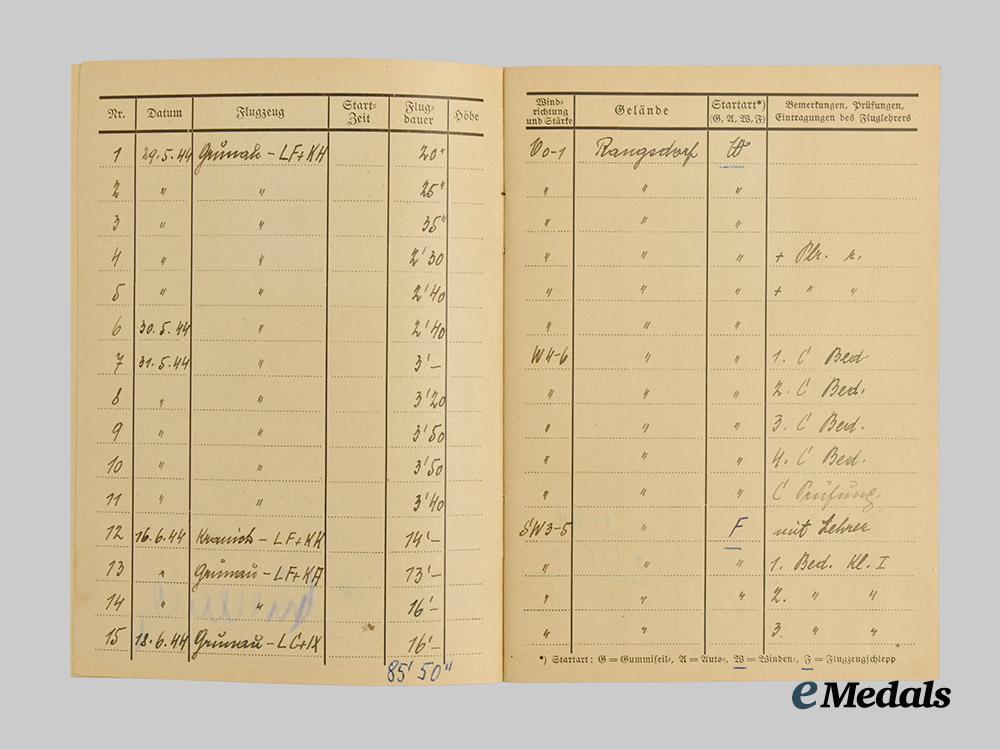 Nr. Datum Flugzeug Start-Zeit Flug-dauer Höhe Wind-richtung und Stärke Gelände Startart*) (G, A, W, F) Bemerkungen, Prüfungen, Eintragungen des Fluglehrers
1 29.5.44 Grunau - LF+KH 20" O0-1 Rangsdorf W
2 " " 25" " " "
3 " " 35" " " "
4 " " 2'30 " " " +
5 " " 2'40 " " " + " "
6 30.5.44 " 2'40 " " "
7 31.5.44 " 3'- W4-6 " " 1. C Bed
8 " " 3'20 " " " 2. C Bed.
9 " " 3'50 " " " 3. C Bed.
10 " " 3'50 " " " 4. C Bed.
11 " " 3'40 " " " C Prüfung.
12 16.6.44 Kranich - LF+KK 14'- SW3-5 " F mit Lehrer
13 " Grunau - LF+KA 13'- " " " 1. Bed. Kl. I
14 " " 16'- " " " 2. " "
15 18.6.44 Grunau - LC+IX 16'- " " 3. " "
85' 50"
*) Startart: G = Gummiseil-, A = Auto-, W = Winden-, F = Flugzeugschlepp
eMedals